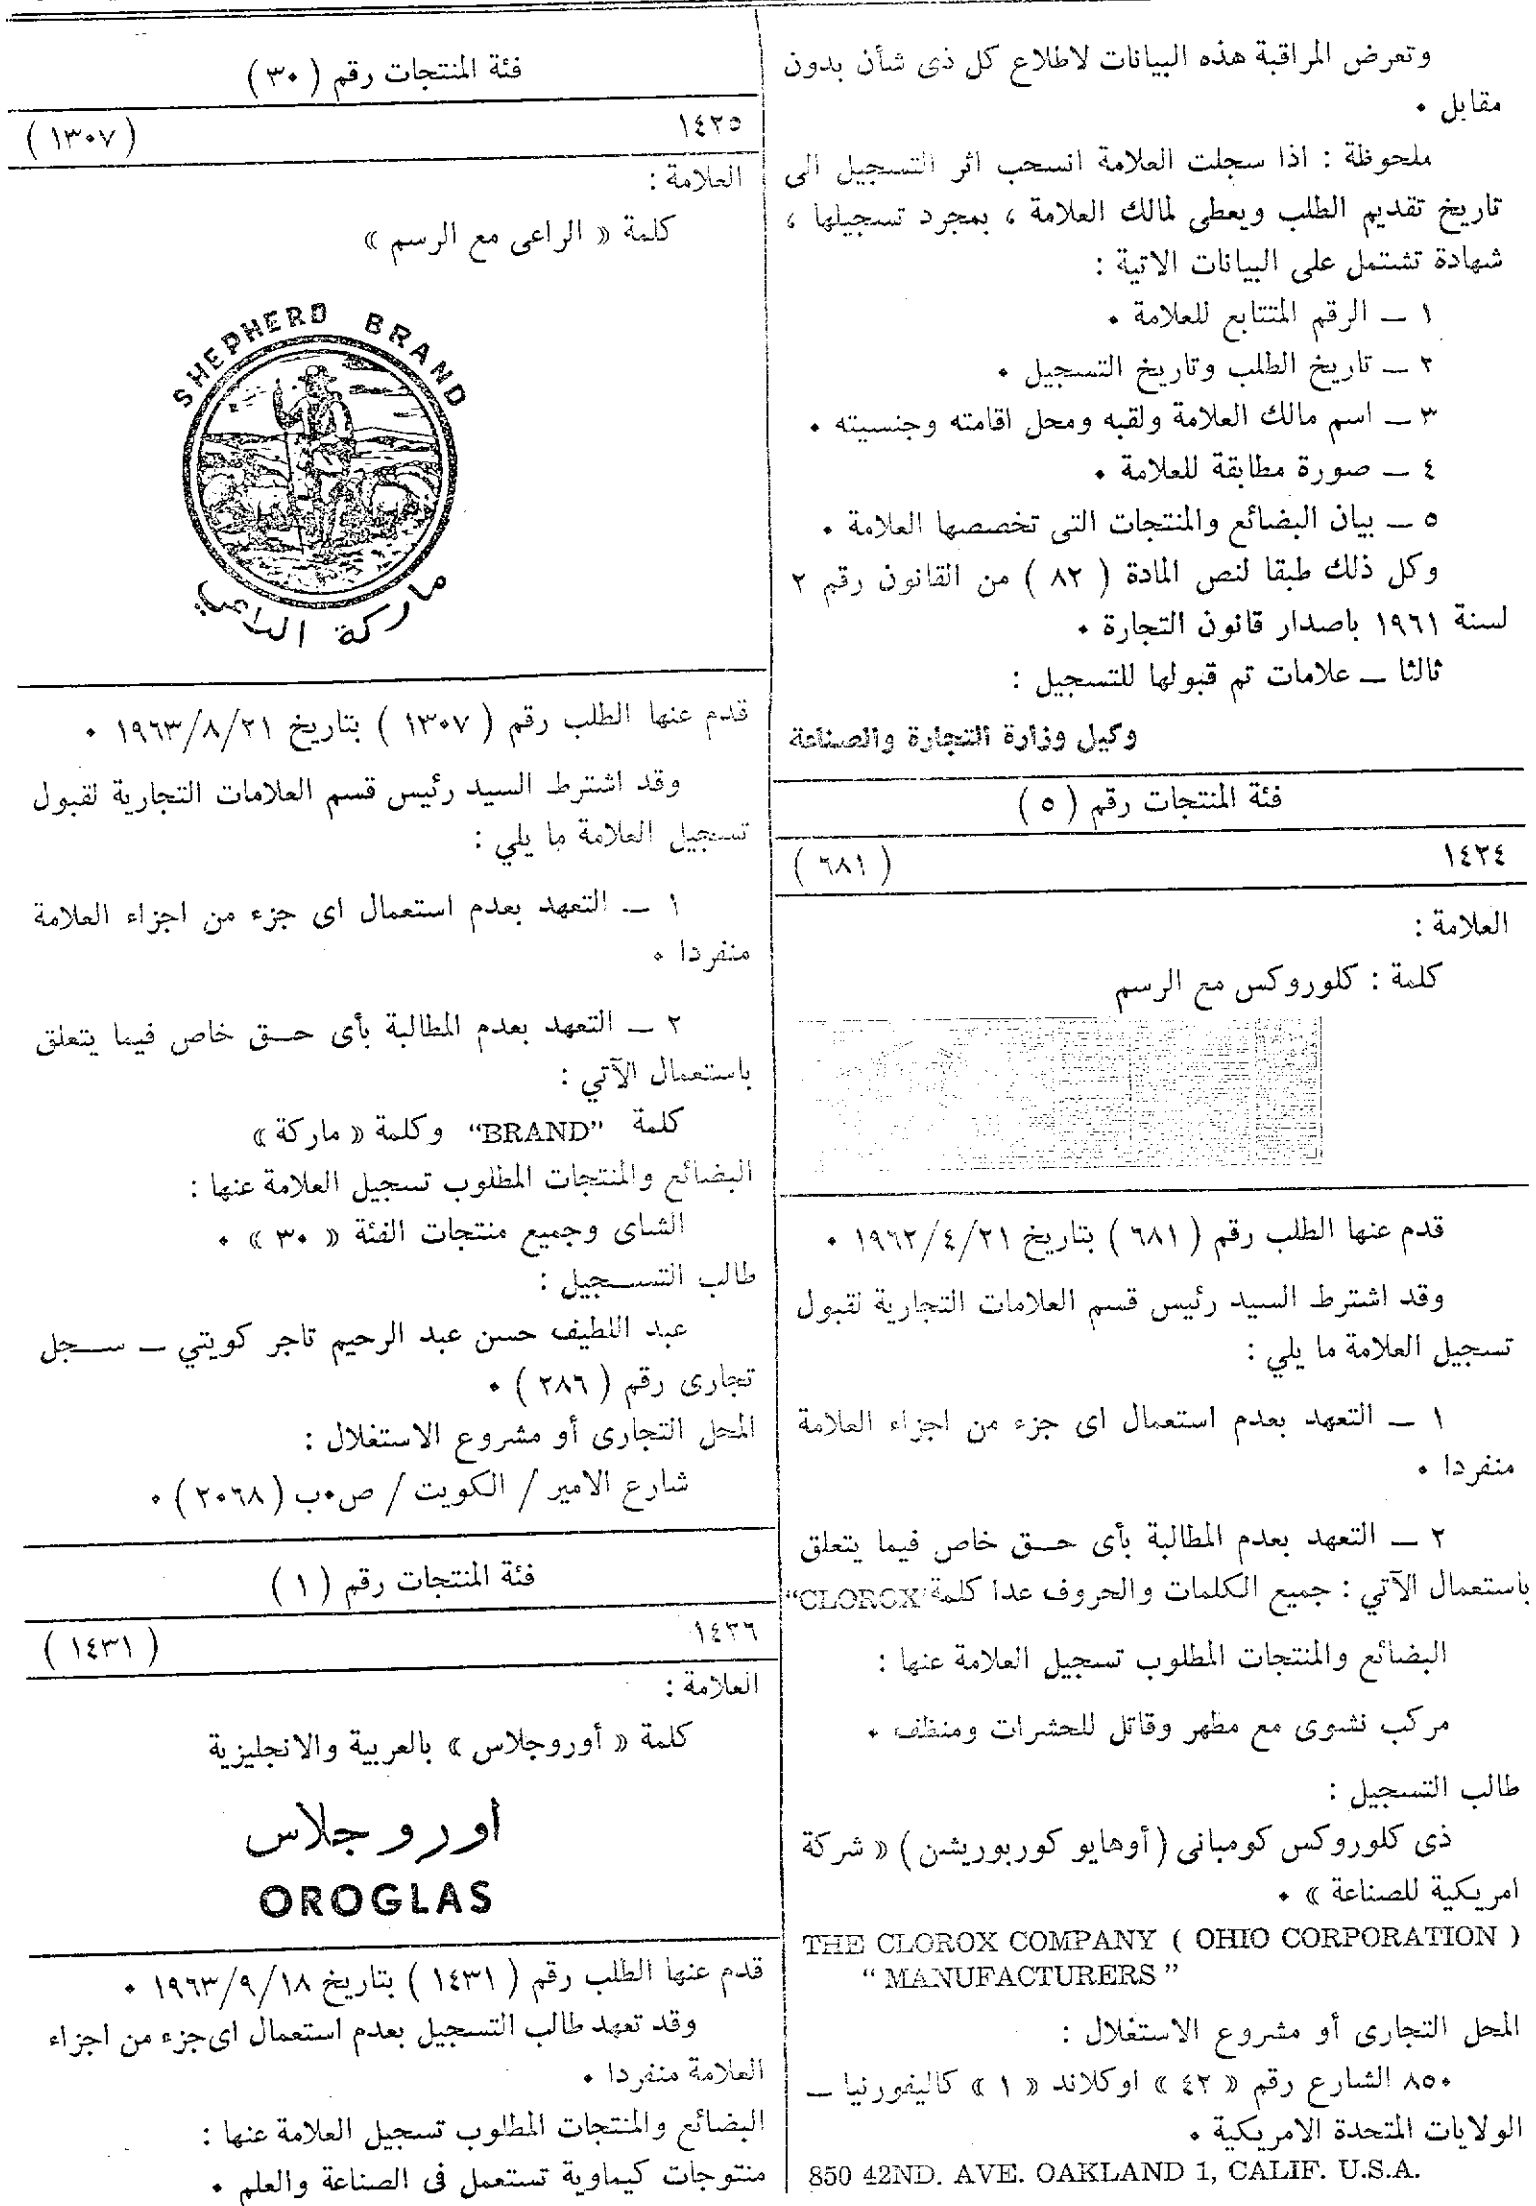 وتعرض المراقبة هذه البيانات لاطلاع كل ذى شأن بدون
مقابل ٠
ملحوظة : اذا سجلت العلامة انسحب اثر التسجيل الى
تاريخ تقديم الطلب ويعطى لمالك العلامة ، بمجرد تسجيلها ،
شهادة تشتمل على البيانات الاتية :
١ ــ الرقم المتتابع للعلامة ٠
٢ ــ تاريخ الطلب وتاريخ التسجيل ٠
٣ ــ اسم مالك العلامة ولقبه ومحل اقامته وجنسيته ٠
٤ ــ صورة مطابقة للعلامة ٠
٥ ــ بيان البضائع والمنتجات التى تخصصها العلامة ٠
وكل ذلك طبقا لنص المادة ( ٨٢ ) من القانون رقم ٢
لسنة ١٩٦١ باصدار قانون التجارة ٠
ثالثا ــ علامات تم قبولها للتسجيل :
وكيل وزارة التجارة والصناعة
فئة المنتجات رقم ( ٥ )
١٤٢٤ ( ٦٨١ )
العلامة :
كلمة : كلوروكس مع الرسم
قدم عنها الطلب رقم ( ٦٨١ ) بتاريخ ١٩٦٢/٤/٢١ ٠
وقد اشترط السيد رئيس قسم العلامات التجارية لقبول
تسجيل العلامة ما يلي :
١ ــ التعهد بعدم استعمال اى جزء من اجزاء العلامة
منفردا ٠
٢ ــ التعهد بعدم المطالبة بأى حــق خاص فيما يتعلق
باستعمال الآتي : جميع الكلمات والحروف عدا كلمة "CLOROX"
البضائع والمنتجات المطلوب تسجيل العلامة عنها :
مركب نشوى مع مطهر وقاتل للحشرات ومنظف ٠
طالب التسجيل :
ذى كلوروكس كومبانى ( أوهايو كوربوريشن ) « شركة
امريكية للصناعة » ٠
THE CLOROX COMPANY ( OHIO CORPORATION )
“ MANUFACTURERS ”
المحل التجارى أو مشروع الاستغلال :
٨٥٠ الشارع رقم « ٤٢ » اوكلاند « ١ » كاليفورنيا ــ
الولايات المتحدة الامريكية ٠
850 42ND. AVE. OAKLAND 1, CALIF. U.S.A.
فئة المنتجات رقم ( ٣٠ )
١٤٢٥ ( ١٣٠٧ )
العلامة :
كلمة « الراعى مع الرسم »
SHEPHERD BRAND
ماركة الراعي
قدم عنها الطلب رقم ( ١٣٠٧ ) بتاريخ ١٩٦٣/٨/٢١ ٠
وقد اشترط السيد رئيس قسم العلامات التجارية لقبول
تسجيل العلامة ما يلي :
١ ــ التعهد بعدم استعمال اى جزء من اجزاء العلامة
منفردا ٠
٢ ــ التعهد بعدم المطالبة بأى حــق خاص فيما يتعلق
باستعمال الآتي :
كلمة "BRAND" وكلمة « ماركة »
البضائع والمنتجات المطلوب تسجيل العلامة عنها :
الشاى وجميع منتجات الفئة « ٣٠ » ٠
طالب التســجيل :
عبد اللطيف حسن عبد الرحيم تاجر كويتي ــ ســجل
تجارى رقم ( ٢٨٦ ) ٠
المحل التجارى أو مشروع الاستغلال :
شارع الامير / الكويت / ص٠ب ( ٢٠٦٨ ) ٠
فئة المنتجات رقم ( ١ )
١٤٢٦ ( ١٤٣١ )
العلامة :
كلمة « أوروجلاس » بالعربية والانجليزية
اوروجلاس
OROGLAS
قدم عنها الطلب رقم ( ١٤٣١ ) بتاريخ ١٩٦٣/٩/١٨ ٠
وقد تعهد طالب التسجيل بعدم استعمال اى جزء من اجزاء
العلامة منفردا ٠
البضائع والمنتجات المطلوب تسجيل العلامة عنها :
منتوجات كيماوية تستعمل فى الصناعة والعلم ٠